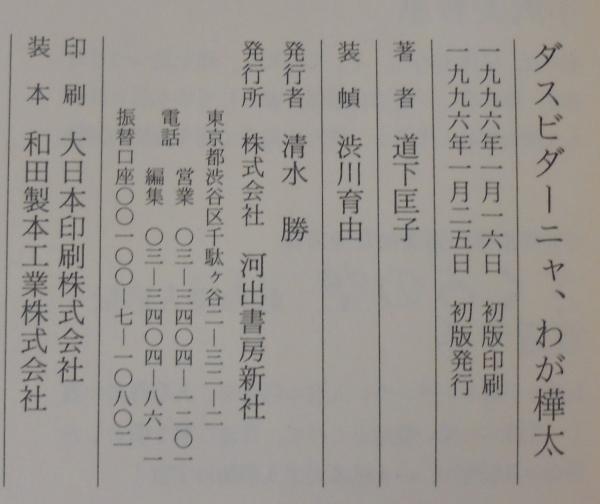 ダスビダーニャ、わが樺太
一九九六年一月一六日　初版印刷
一九九六年一月二五日　初版発行
著　者　道下匡子
装　幀　渋川育由
発行者　清水　勝
発行所　株式会社　河出書房新社
東京都渋谷区千駄ヶ谷二―三二―二
電話　営業　〇三―三四〇四―一二〇一
編集　〇三―三四〇四―八六一一
振替口座〇〇一〇〇―七―一〇八〇二
印　刷　大日本印刷株式会社
装　本　和田製本工業株式会社